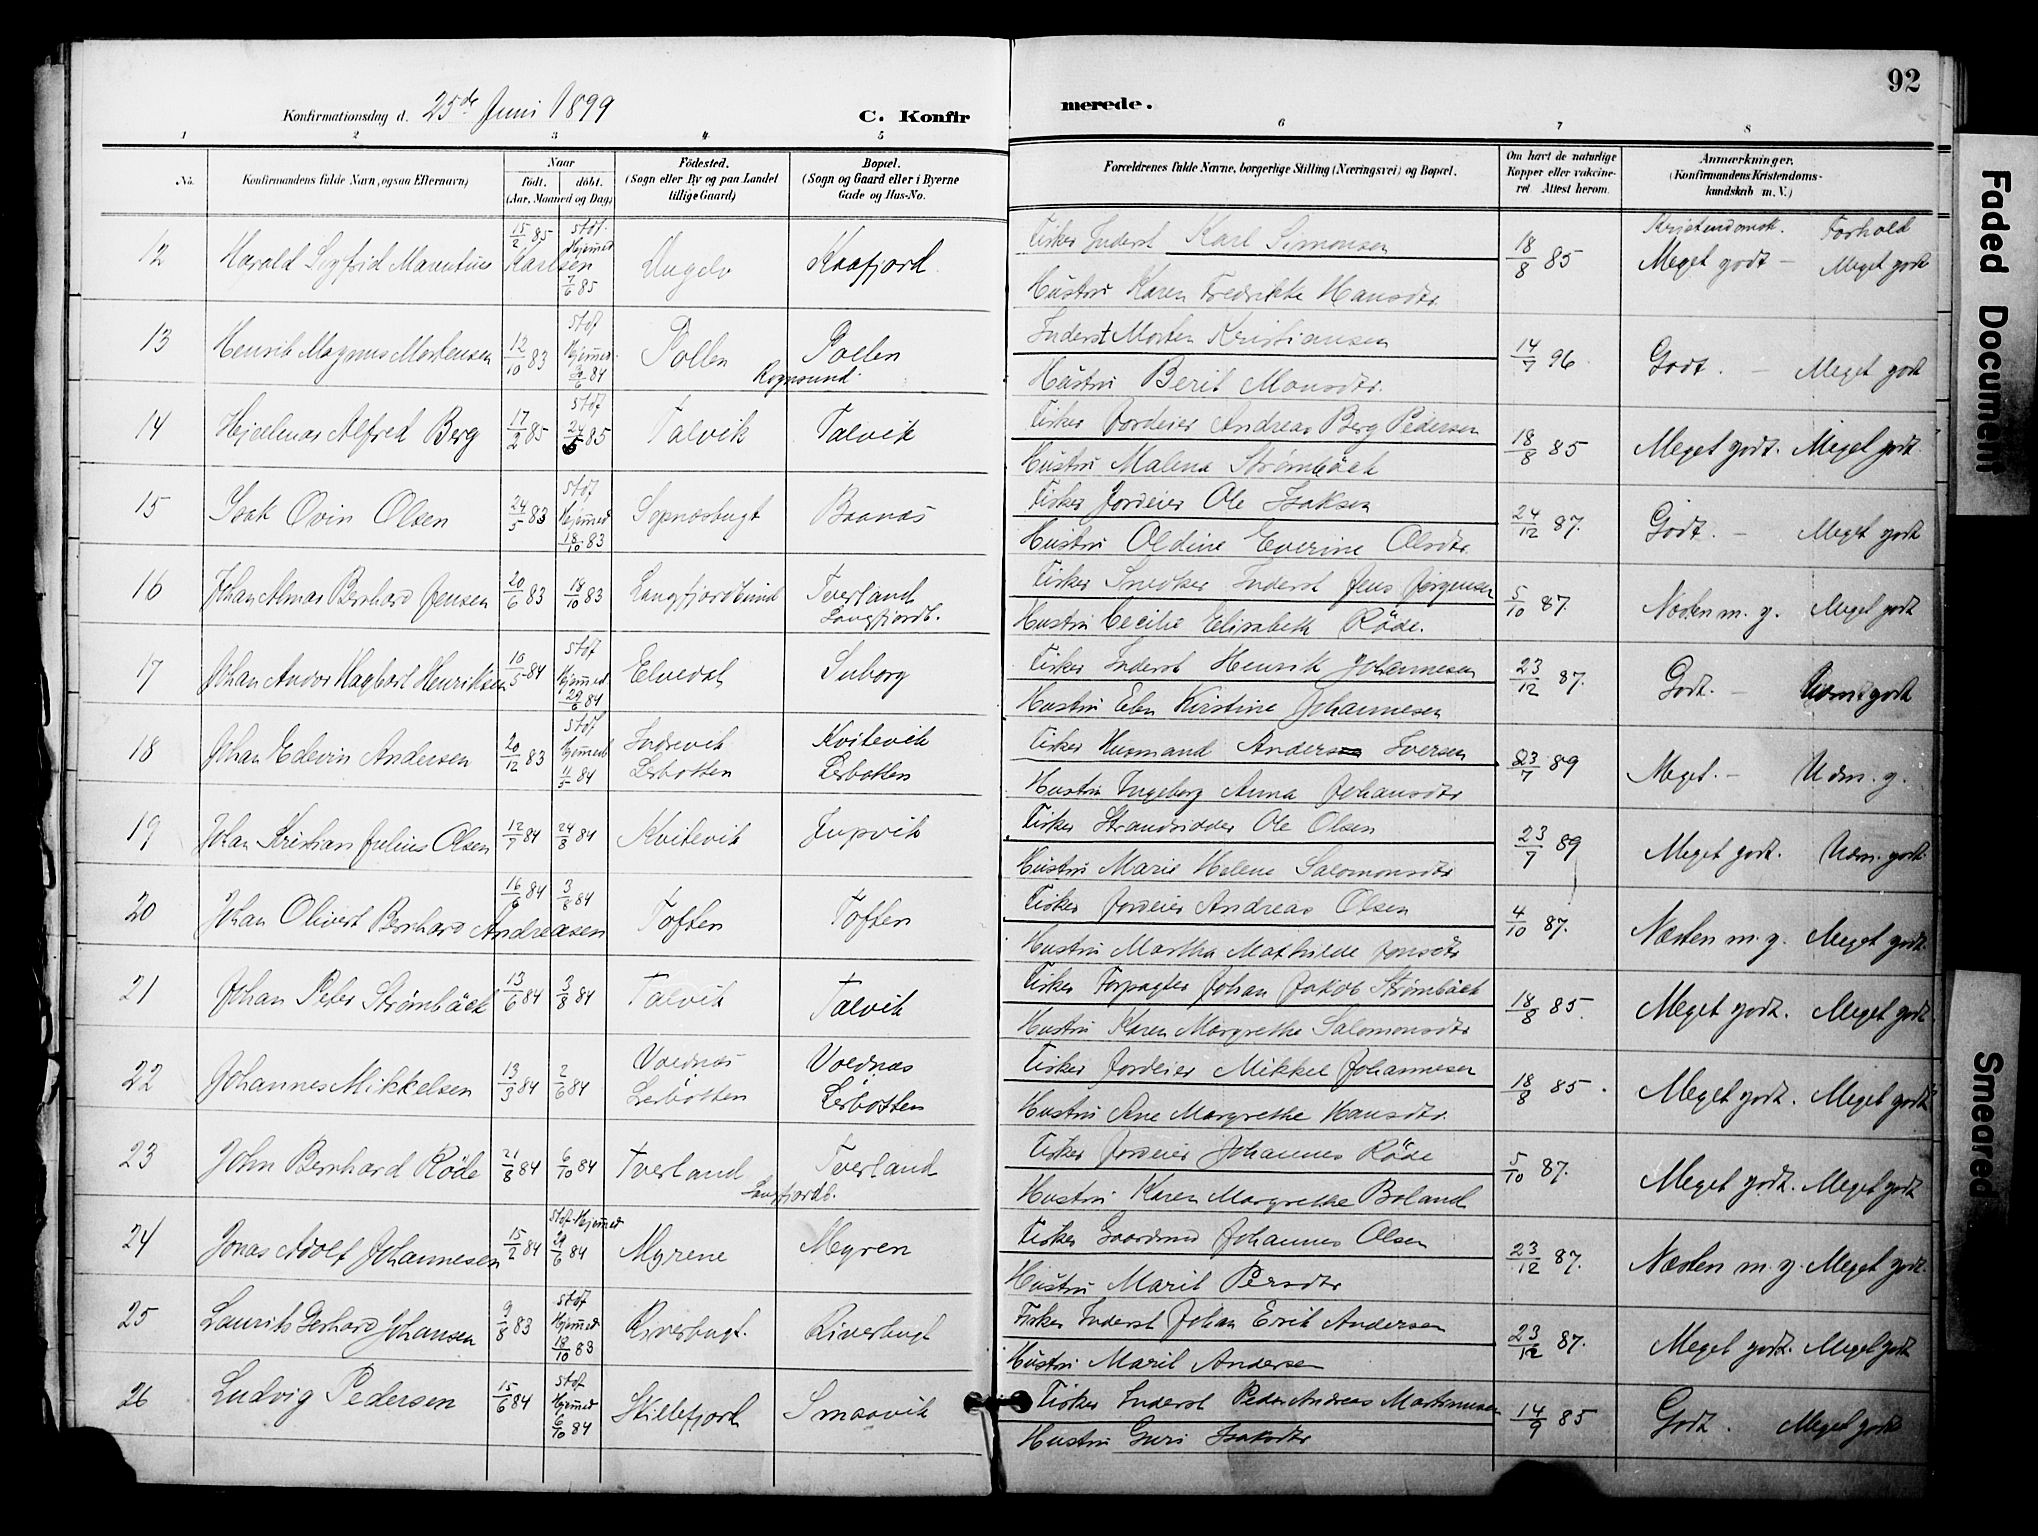 92
Konfirmationsdag d. 25de Juni 1899
C. Konfirmerede.
1 2 3 4 5 6 7 8
No. Konfirmandens fulde Navn, ogsaa Efternavn) Naar Födt. döbt. (Aar, Maaned og Dag) Födested. (Sogn eller By og paa Landet tillige Gaard) Bopæl. (Sogn og Gaard eller i Byerne Gade og Hus-No. Forældrenes fulde Navne, borgerlige Stilling (Næringsvei) og Bopæl. Om havt de naturlige Kopper eller vakcineret Attest herom. Anmærkninger. (Konfirmandens Kristendomskundskab m. V.)
Kristendomsk. Forhold
12 Harald Sigfrid Marentius Karlsen 15/2 85 Stdf. Hjemmed 7/6 85 Kaafjord Fisker Inderst Karl Simonsen 18/8 85 Meget godt – Meget godt
Hustru Karen Fredrikke Hansdtr
13 Henrik Magnus Mortensen 12/10 83 Stdf Hjemmed 84 Pollen Pollen Rognsund Inderst Morten Kristiansen 14/7 96 Godt. – Meget godt
Hustru Berit Monsdtr.
14 Hjalmar Alfred Berg 17/2 85 Stdf 24/5 85 Talvik Talvik Fisker Jordeier Andreas Berg Pedersen 18/8 85 Meget godt. Meget godt.
Hustru Malena Strømbäck
15 Isak Ovin Olsen 24/5 83 Stdf Hjemmed 18/10 83 Sopnæsbugt Fisker Jordeier Ole Isaksen 24/12 87. Godt. – Meget godt
Hustru Oldine Everine Olsdtr
16 Johan Almar Bernhard Jensen 20/6 83 18/10 83 Langfjordbund Tverland Langfjordb. Fisker Snedker Inderst Jens Jørgensen 5/10 87. Næsten m. g. Meget godt
Hustru Cecilie Elisabeth Röde.
17 Johan Andor Hagbart Henriksen 10/5 84 Stdf Hjemmed 29/6 84 Elvedal Fisker Inderst Henrik Johannesen 23/12 87. Godt. – godt
Hustru Elen Kirstine Johannesen
18 Johan Edevin Andersen 20/12 83 Stdf Hjemmed 11/5 84 Indrevik Lerbotten Kvitevik Lerbotten Fisker Husmand Anders Iversen 23/7 89 Meget. – Udm. g.
Hustru Ingeborg Anna Johansdtr
19 Johan Kristian Julius Olsen 12/7 84 24/8 84 Kvitevik Jupvik Fisker Strandsidder Ole Olsen 23/7 89 Meget godt. Udm. godt
Hustru Marie Helene Salomonsdtr
20 Johan Olivert Bernhard Andreasen 16/6 84 3/8 84 Toften Toften Fisker Jordeier Andreas Olsen 4/10 87. Næsten m. g. Meget godt.
Hustru Martha Mathilde Jensdtr
21 Johan Peter Strømbäck 13/6 84 3/8 84 Talvik Talvik Fisker Forpagter Johan Jakob Strømbäck 18/8 85. Meget godt. Meget godt.
Hustru Karen Margrethe Salomonsdtr
22 Johannes Mikkelsen 13/3 84 2/6 84 Vaednæs Lerbotten Vaednæs Lerbotten Fisker Jordeier Mikkel Johannesen 18/8 85. Meget godt. Meget godt
Hustru Ane Margrethe Hansdtr.
23 John Bernhard Röde 21/8 84 6/10 84 Tverland Tverland Langfjordb. Fisker Jordeier Johannes Röde 5/10 87. Meget godt. Meget godt
Hustru Karen Margrethe Boland
24 Jonas Adolf Johannesen 15/2 84 Stdf Hjemmed 29/6 84 Myrene Myren Fisker Gaardmd Johannes Olsen 23/12 87. Næsten m. g. Meget godt.
Hustru Marit Persdtr
25 Laurits Gerhard Johansen 9/8 83 Stdf Hjemmed 18/10 83 Riverbugt. Riverbugt Fisker Inderst Johan Erik Andersen 23/12 87. Meget godt. Meget godt
Hustru Marit Andersen
26 Ludvig Pedersen 15/6 84 Stdf Hjemmed 6/10 84 Stillefjord Smaavik Fisker Inderst Peder Andreas Mathisen 14/9 85 Godt. Meget godt
Hustru Guri Isaksdtr
Faded Document
Smeared